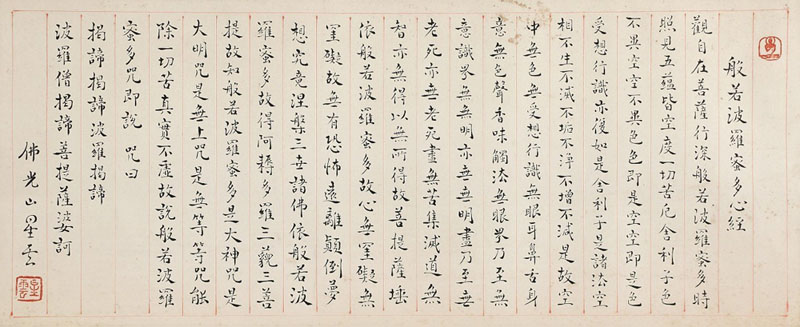 般若波羅蜜多心經
觀自在菩薩行深般若波羅蜜多時
照見五蘊皆空度一切苦厄舍利子色
不異空空不異色色即是空空即是色
受想行識亦復如是舍利子是諸法空
相不生不滅不垢不淨不增不減是故空
中無色無受想行識無眼耳鼻舌身
意無色聲香味觸法無眼界乃至無
意識界無無明亦無無明盡乃至無
老死亦無老死盡無苦集滅道無
智亦無得以無所得故菩提薩埵
依般若波羅蜜多故心無罣礙無
罣礙故無有恐怖遠離顛倒夢
想究竟涅槃三世諸佛依般若波
羅蜜多故得阿耨多羅三藐三菩
提故知般若波羅蜜多是大神咒是
大明咒是無上咒是無等等咒能
除一切苦真實不虛故說般若波羅
蜜多咒即說 咒曰
揭諦揭諦波羅揭諦
波羅僧揭諦菩提薩婆訶
佛光山星雲
星雲